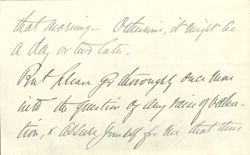 that morning - Otherwise, it might be
a day, or two late.
But please go thoroughly once more
into the question of any ruins of
, & assure yourself for me that there